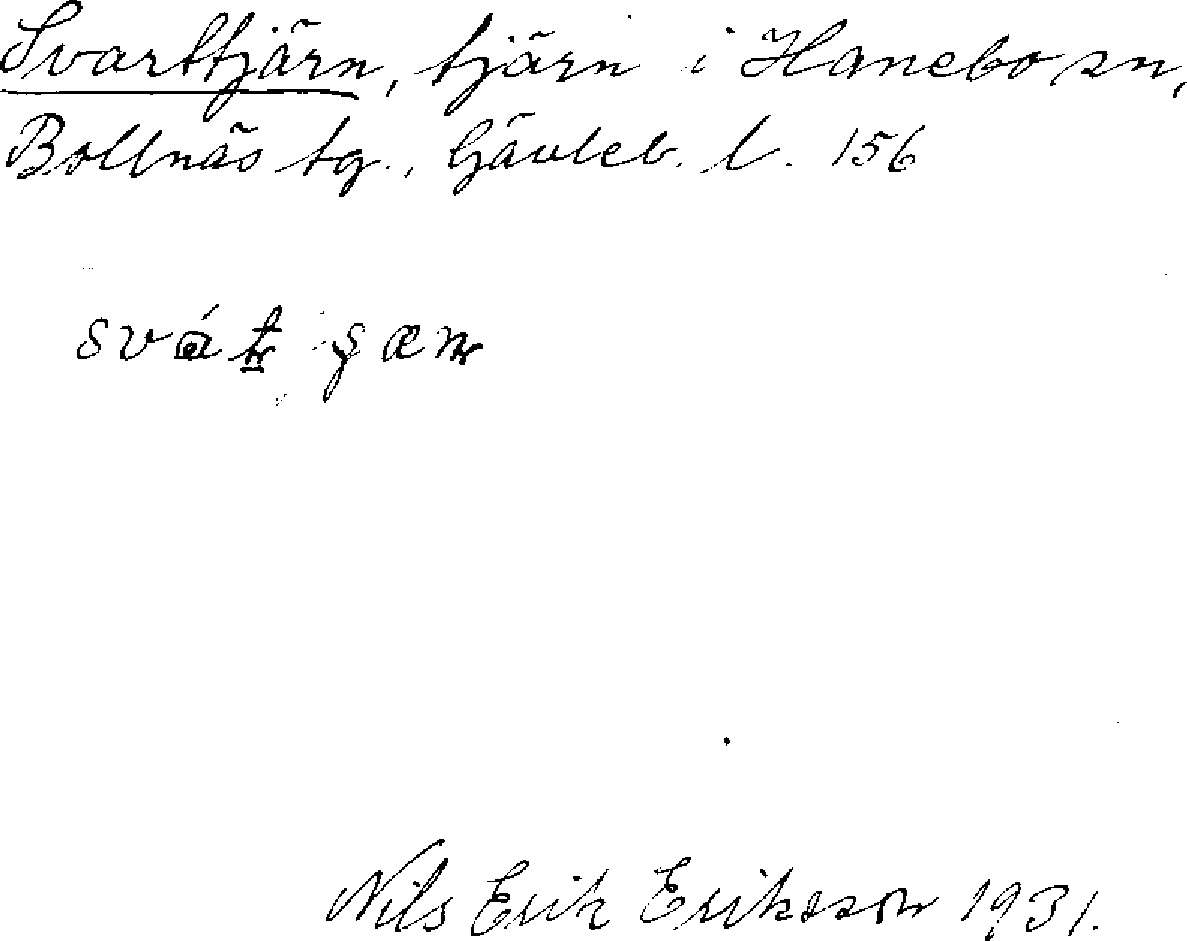 Svarttjärn, tjärn i Hanebo sn,
Bollnäs tg., Gävleb. l. 156
Nils Erik Eriksson 1931.